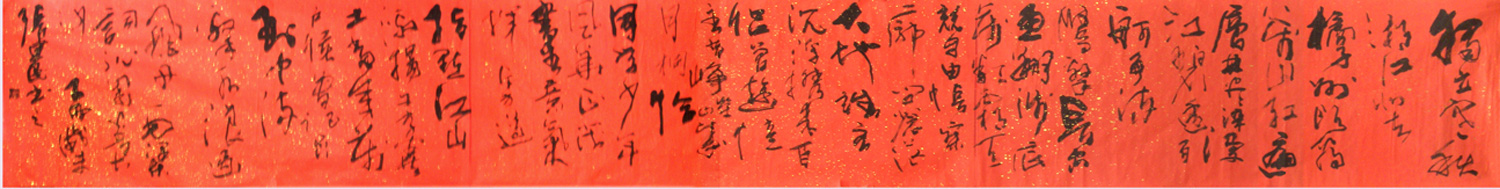 独立寒秋
湘江北去
橘子洲头看
万山红遍
层林尽染漫
江碧透百
舸争流
鹰击长空
鱼翔浅底
万类霜天
竞自由怅寥
廓问苍茫
大地谁主
沉浮携来百
侣曾游忆
峥嵘岁
月稠恰
同学少年
风华正茂
书生意气
挥斥方遒
指点江山
激扬文字粪
土当年万
户侯曾记否
到中流
击水浪遏
飞舟毛泽东
词沁园春长
沙